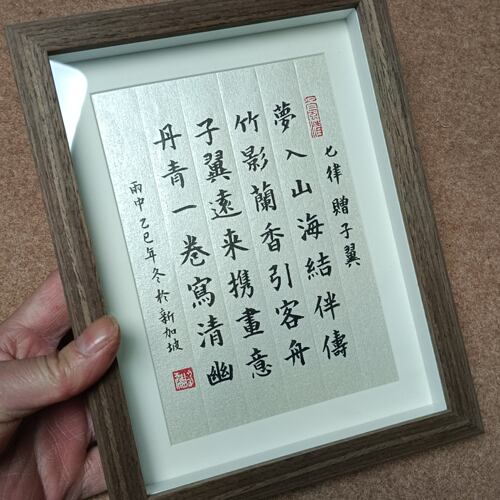 七律 贈子翼
夢入山海結伴儔
竹影蘭香引客舟
子翼遠来携畫意
丹青一卷寫清幽
雨中乙巳年冬於新加坡